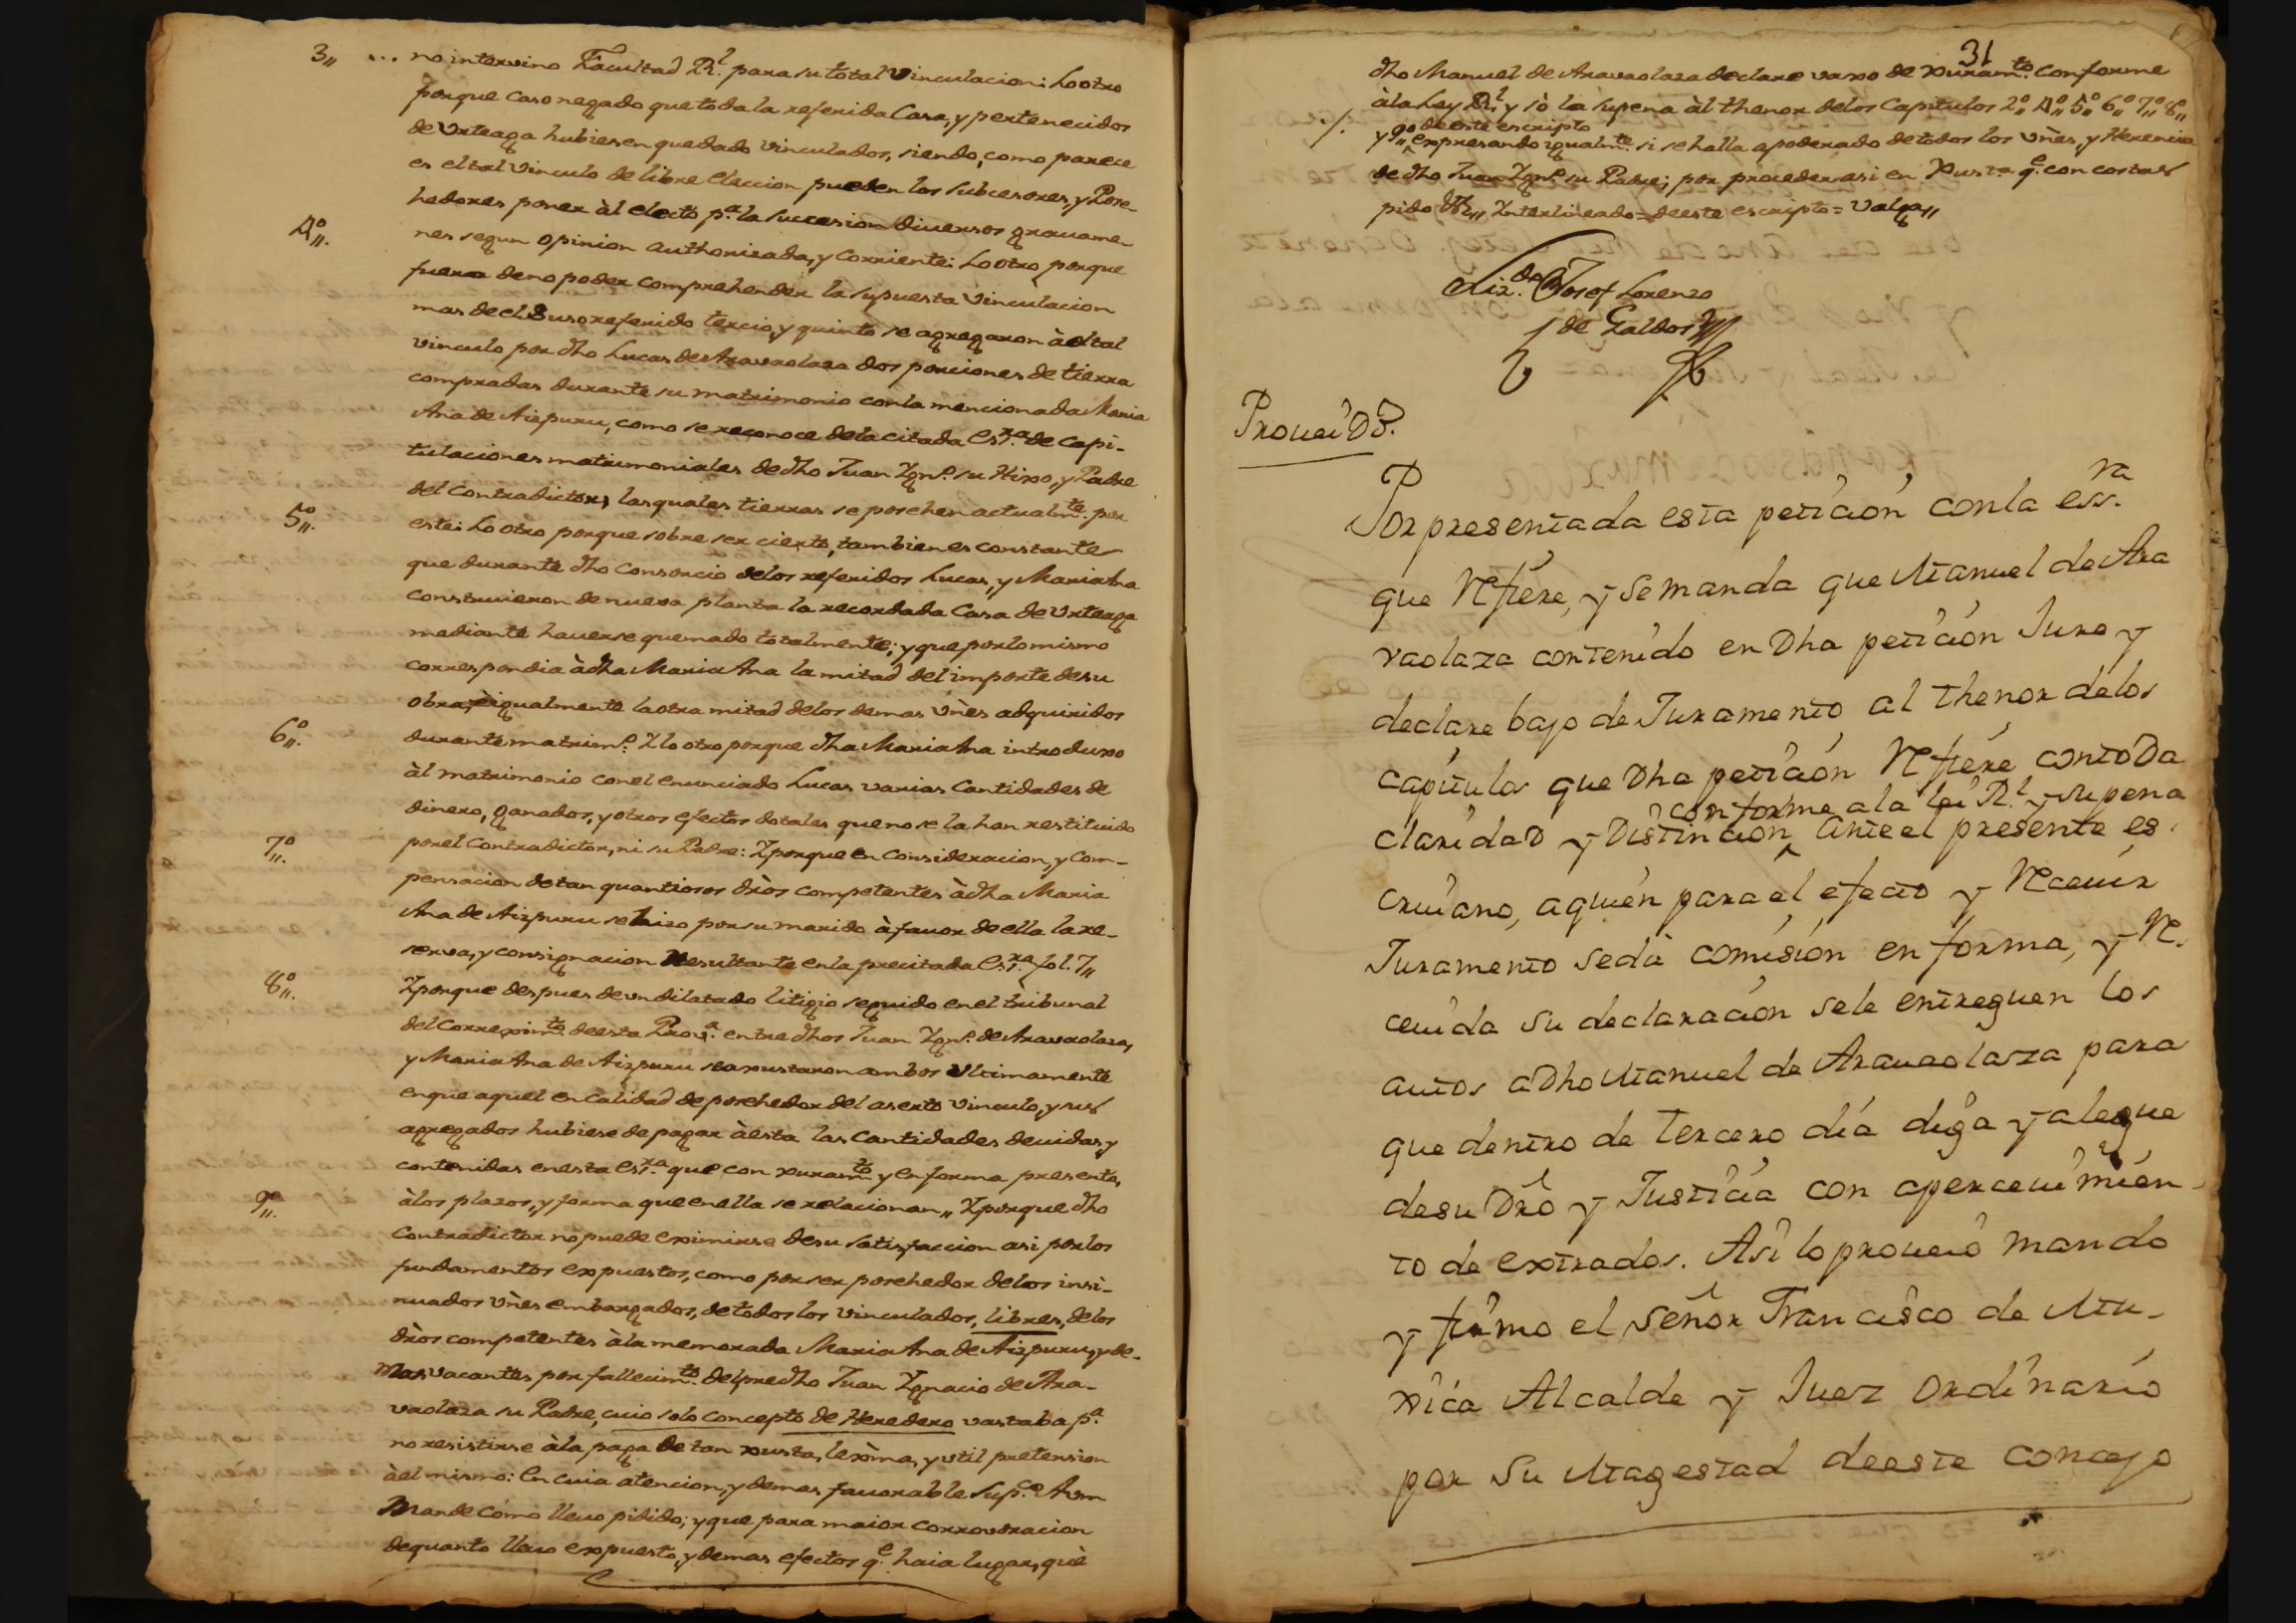 3,, ... no intervino Facultad Rl. para su total vinculacion: Lo otro
porque caso negado que toda la referida Casa, y pertenecidos
de Urteaga hubiesen quedado vinculados, siendo, como parece
es el tal vinculo de libre eleccion pueden los subcesores, y Pose-
hedores poner àl electo pa. la succesion diversos gravame-
4º,,. nes segun opinion authorizada, y corriente: Lo otro porque
fuera de no poder comprehender la supuesta vinculacion
mas de el suso referido tercio, y quinto se agregaron àel tal
vinculo por dho Lucas de Aravaolaza dos porciones de tierra
compradas durante su matrimonio con la mencionada Maria
Ana de Aizpuru, como se reconoce de la citada esra. de Capi-
tulaciones matrimoniales de dho Juan Ygno. su Hixo, y Padre
del Contradictor, las quales tierras se posehen actualmte. por
5º,,. este: Lo otro porque sobre ser cierto, tambien es constante
que durante dho consorcio de los referidos Lucas, y Maria Ana
construieron de nueva planta la recordada Casa de Urteaga
mediante haverse quemado totalmente; y que por lo mismo
correspondia à dha Maria Ana la mitad del importe de su
obra, è igualmente la otra mitad de los demas vñes adquiridos
6º,,. durante matrimo. Y lo otro porque dha Maria Ana introduxo
àl matrimonio con el enunciado Lucas varias Cantidades de
dinero, ganados, y otros efectos dotales que no se la han restituido
7º,,. por el Contradictor, ni su Padre: Y porque en consideracion, y Com-
pensacion de tan quantiosos drõs competentes à dha Maria
Ana de Aizpuru se hizo por su marido à favor de ella la re-
serva, y consignacion resultante en la precitada esra. fol. 7,,
8º,,. Y porque despues de un dilatado litigio seguido en el tribunal
del Correximto. de esta Prova. entre dhos Juan Ygno. de Aravaolaza,
y Maria Ana de Aizpuru se axustaron ambos ultimamente
en que aquel en calidad de posehedor del aserto vinculo, y sus
agregados hubiese de pagar à esta las cantidades devidas, y
contenidas en esta esra. que con xuramto. y en forma presento,
9º,,. à los plazos, y forma que en ella se relacionan,, Y porque dho
Contradictor no puede eximirse de su satisfaccion asi por los
fundamentos expuestos, como por ser posehedor de los insi-
nuados vñes embargados, de todos los vinculados, libres, de los
drõs competentes à la memorada Maria Ana de Aizpuru, y de-
mas vacantes por fallecimto. del predho Juan Ygnacio de Ara-
vaolaza su Padre, cuio solo concepto de Heredero vastaba pa.
no resistirse à la paga de tan xusta, lexma, y util pretension
àel mismo: En cuia atencion, y demas favorable Supco. A vm
mande como llevo pidido; y que para maior corrovoracion
de quanto llevo expuesto, y demas efectos qe. haia lugar, què
31
dho Manuel de Aravaolaza declare vaxo de xuramto. conforme
à la Ley Rl. y sò la supena àl thenor de los Capitulos 2º,, 4º,, 5º,, 6º,, 7º,, 8º,,
de este escripto
y 9º,, expresando igualmte. si se halla apoderado de todos los vñes, y Herencia
de dho Juan Ygno. su Padre; por proceder asi en Xusta. qe. con costas
pido &a,, Ynterlineado= de este escripto= valga,,
Lizdo. Josef Lorenzo
de Galdos
Proueído.
Por presentada esta petición con la essra.
que Refiere, y se manda que Manuel de Ara
vaolaza contenido en Dha petición Jure y
declare bajo de Juramento al thenor de los
capitulos que Dha petición Refiere con toda
conforme a la lei Rl. y su pena
claridad y Distincion ante el presente es
criuano, a quien para el efecto y Receuir
Juramento se dà comisión en forma, y Re.
ceuida su declaración se le entreguen los
autos a Dho Manuel de Araueolaza para
que dentro de tercero día diga y alegue
de su Drõ y Justicia con aperceuimien-
to de extrados. Asi lo proueió mando
y firmo el señor Francisco de Mu-
xica Alcalde y Juez Ordinario
por su Magestad de este concejo